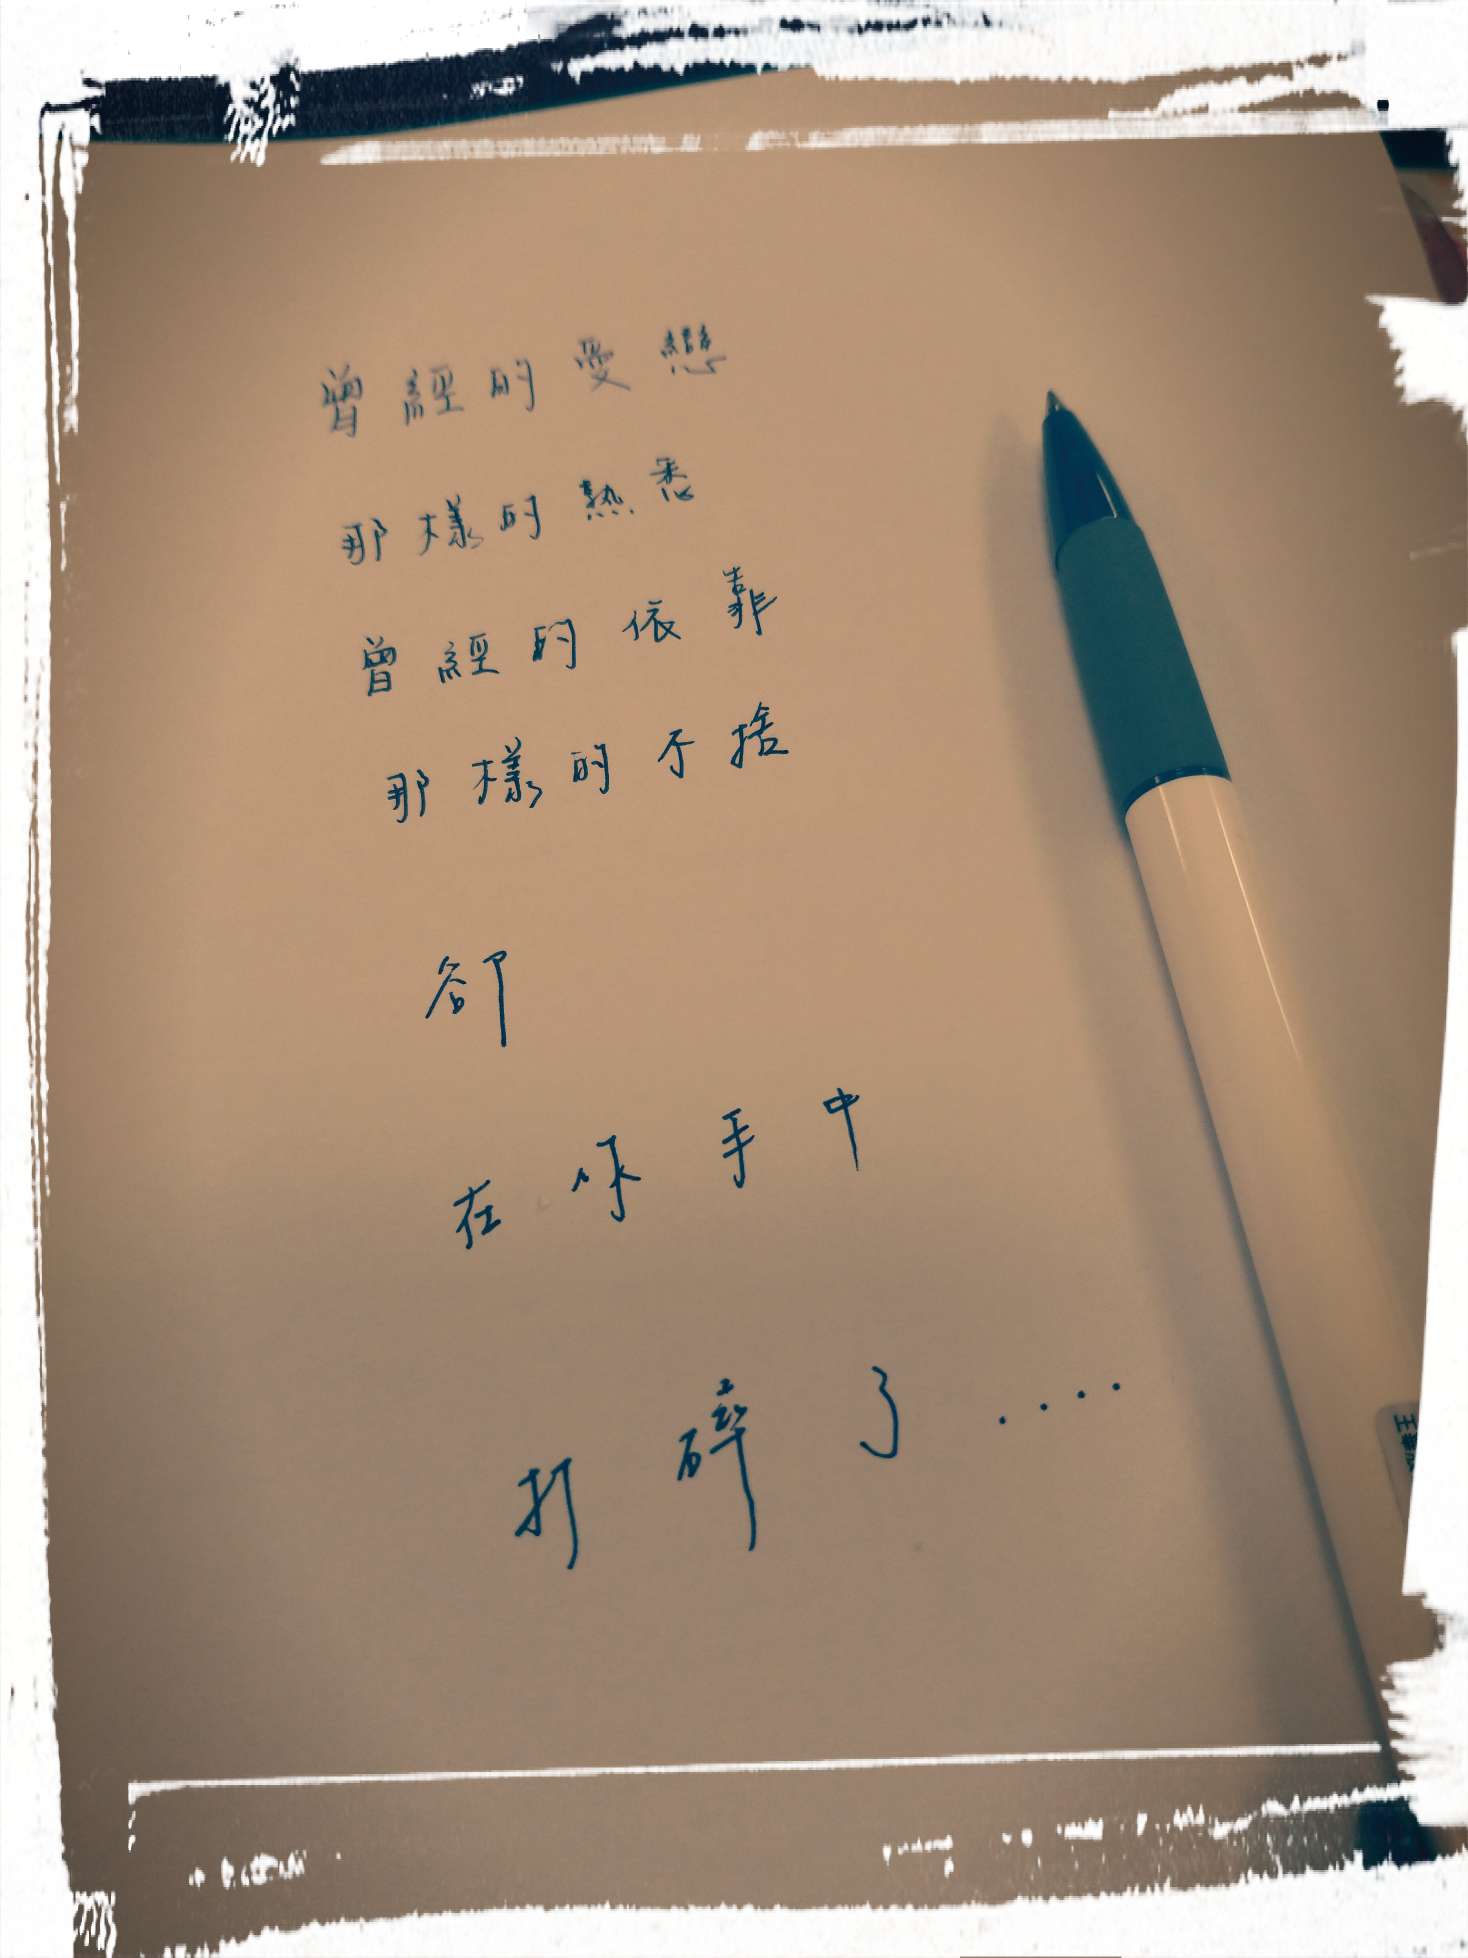 曾經的愛戀
那樣的熟悉
曾經的依靠
那樣的不捨
卻
在 手中
打碎了....